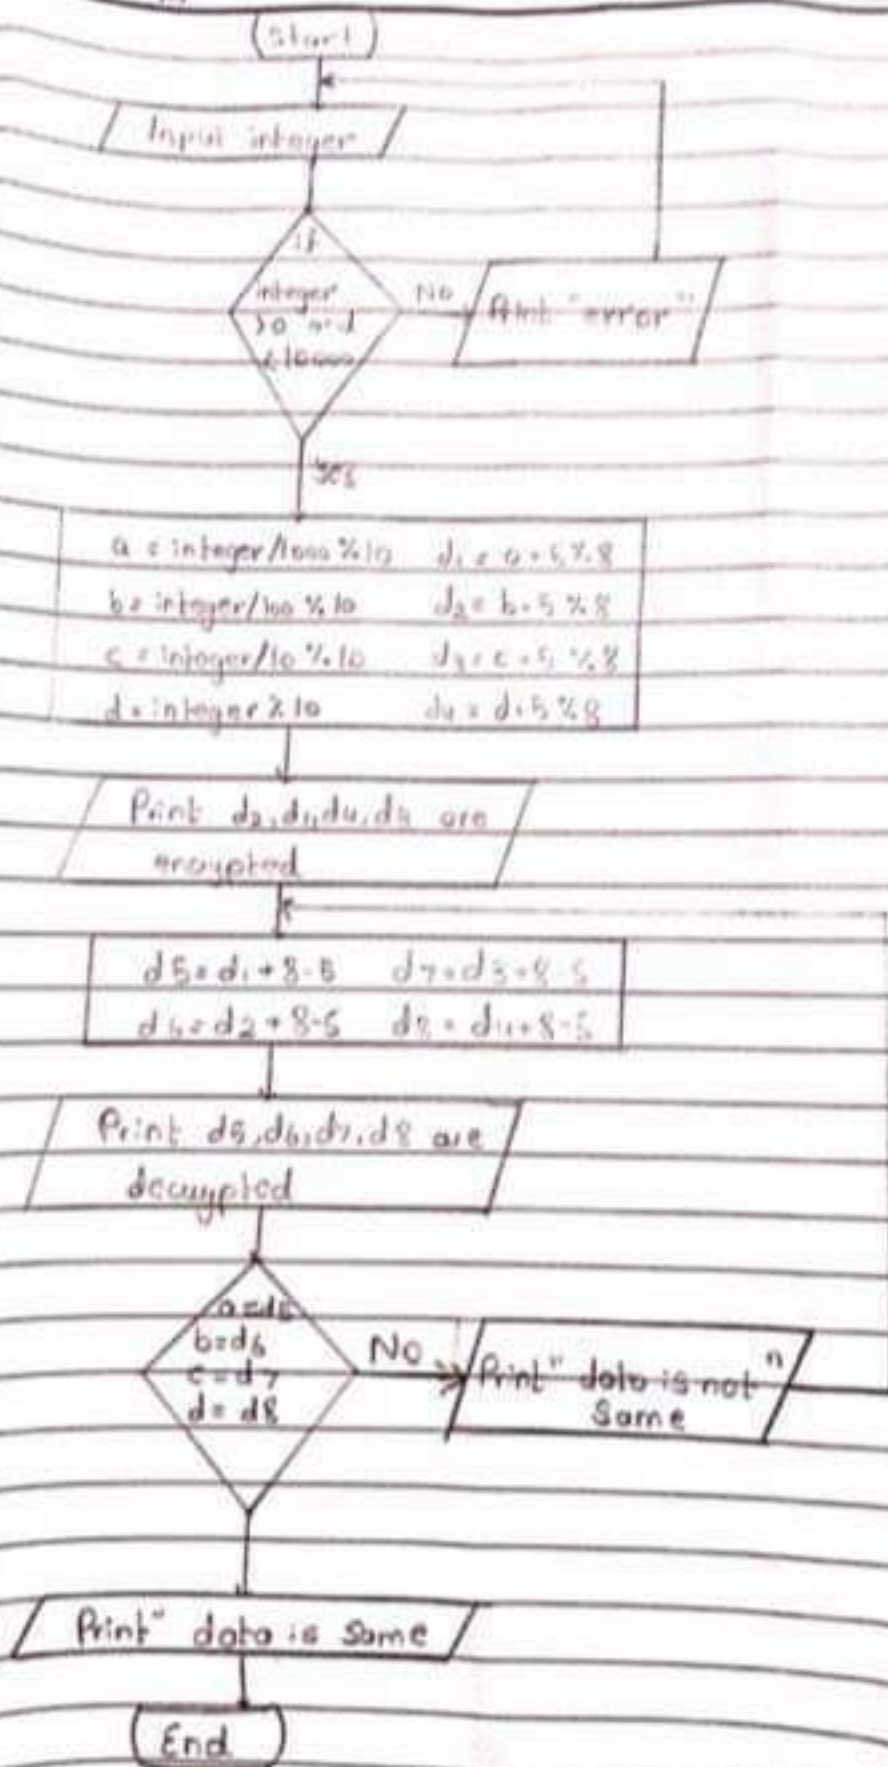 Start
Input integer
if
integer
>0 and
<10000
No
Print "error"
Yes
a = integer/1000 % 10
b = integer/100 % 10
c = integer/10 % 10
d = integer % 10
d1 = a + 5 % 8
d2 = b + 5 % 8
d3 = c + 5 % 8
d4 = d + 5 % 8
Print d2, d1, d4, d3 are
d5 = d1 + 8 - 5
d6 = d2 + 8 - 5
d7 = d3 + 8 - 5
d8 = d4 + 8 - 5
Print d5, d6, d7, d8 are
decrypted
a = d5
b = d6
c = d7
d = d8
No
Print" data is not "
Same
Print" data is same
End